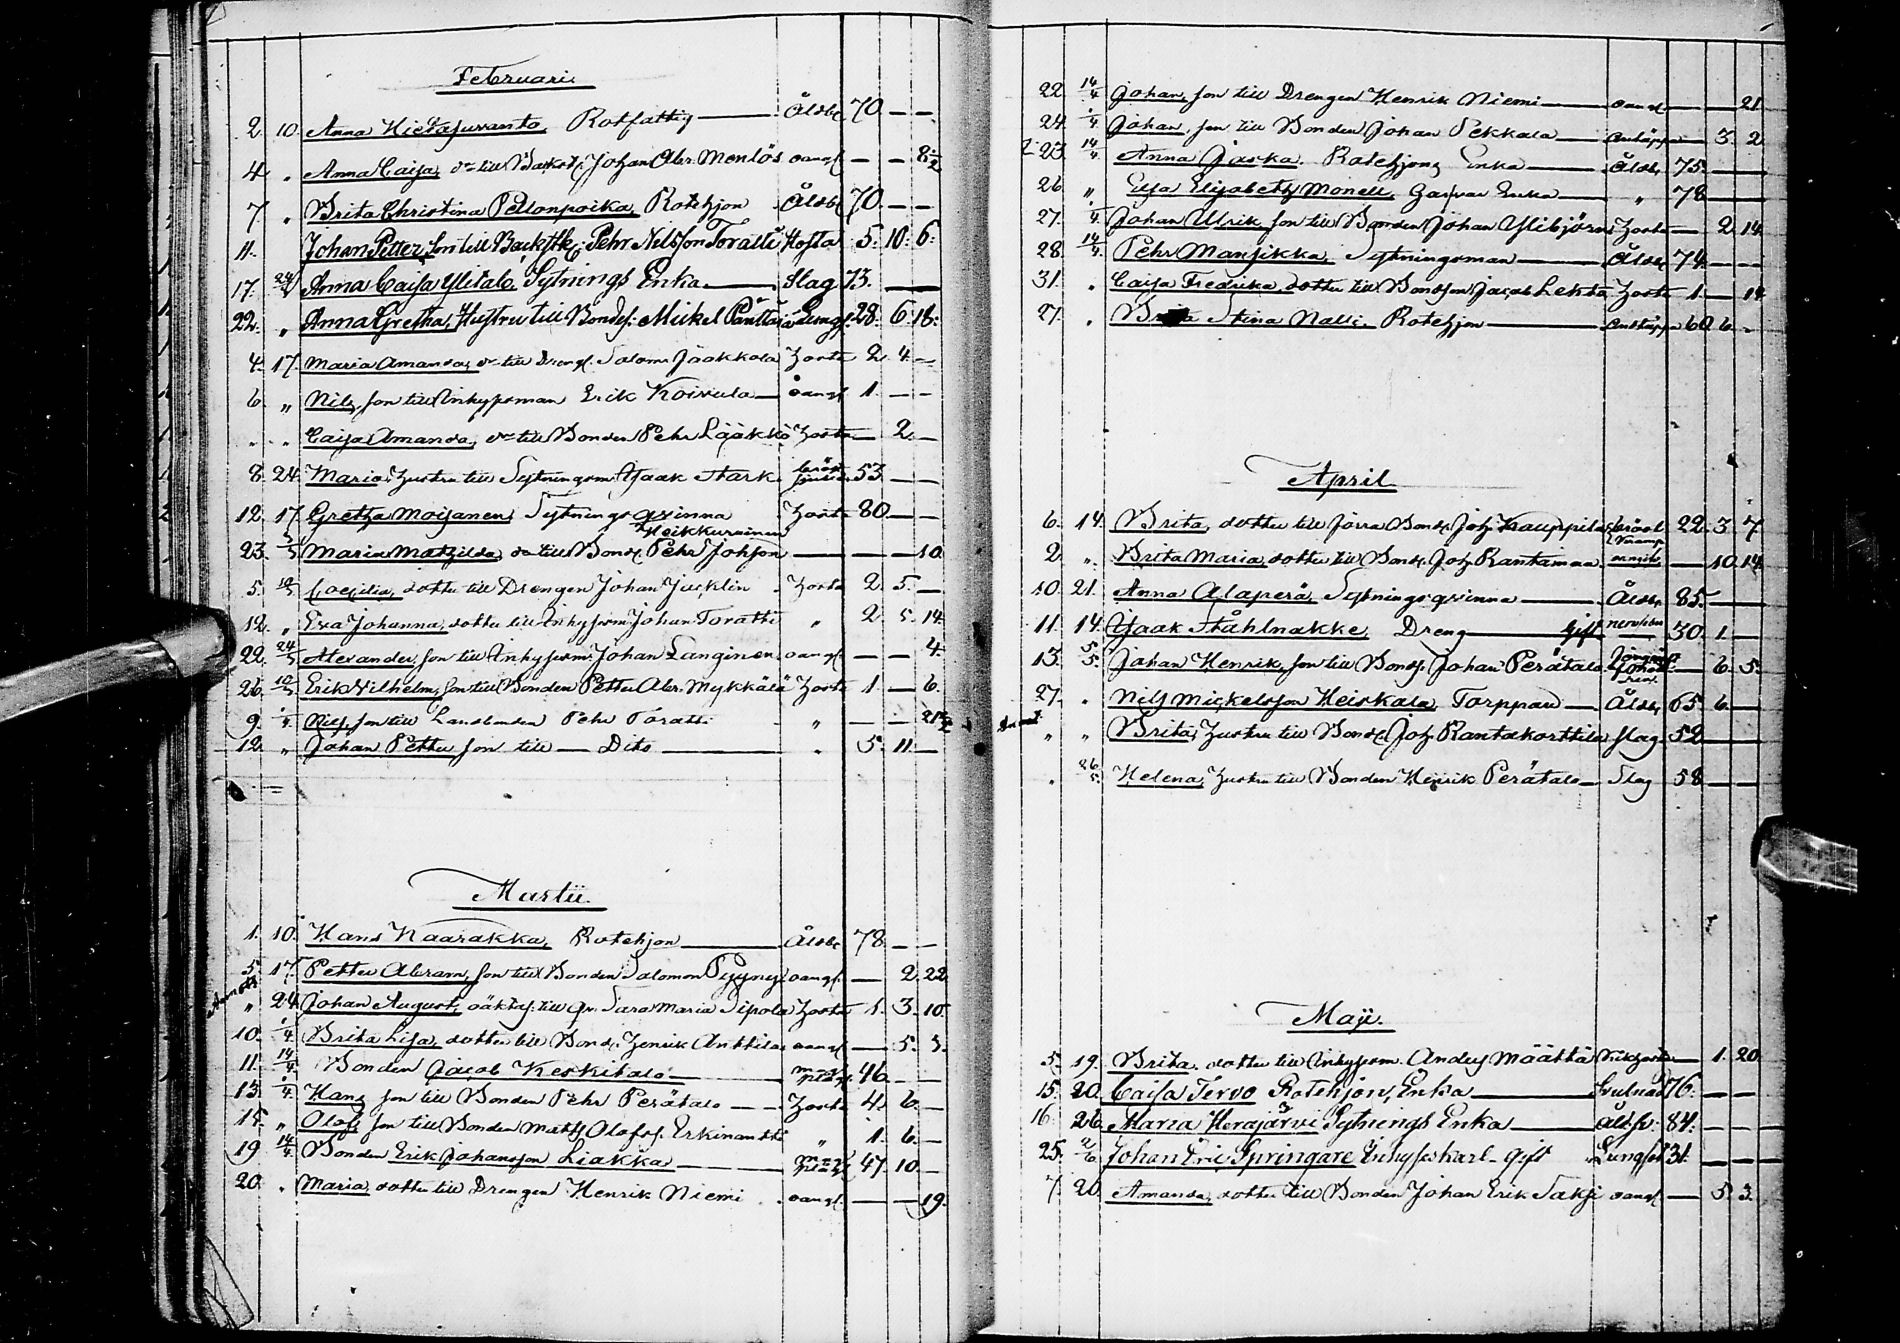 Februarii
2. 10. Anna Hietajuvanto, Rotfattig Åldb. 70. — —
4 " Anna Caisa, dr till Backstk. Johan Abr. Monlös oangf — — 8 1/2
7 " Brita Christina Pellonpoika, Rotehjon Åldb. 70. — —
11. Johan Petter, son till Backstk. Pehr Nelsson Toratti Hosta 5. 10. 6.
17. Anna Caisa Ylitalo, Sytnings Enka Slag 73. — —
22. " Anna Gretha, Hustru till Bondes. Mickel Panttaja 28. 6. 18.
4. 17. Maria Amanda, dr till Drengf. Salom. Jaakkola Hosta 2 4. —
6 " Nils, son till Inhysesman Erik Koivula oangf 1. — —
" " Caisa Amanda, dr till Bonden Pehr Lääkkö Hosta — 2. —
8. 24. Maria, Hustru till Sytningsm. Isaak Stark bröst 53. — —
12. 17. Gretha Moisanen, Sytningsqvinna Hosta 80. — —
Heikkurainen
23. Maria Mathilda, dr till Bond. Pehr Johsson — — — 10.
5. Cecilia, dotter till Drengen Johan Jucklin Hosta 2. 5. —
12. " Eva Johanna, dotter till Inhysesm. Johan Toratti " 2 5. 14.
22. 24/3 Alexander, son till Inhysesm. Johan Langinen oangf. — — 4.
26. Erik Wilhelm, son till Bonden Petter Abr. Mykkälä Hosta 1. — 6.
9. Nils, son till Landbonden Pehr Toratti " — — 21 1/2
12. " Johan Petter son till — Dito — " 5. 11. —
Martii.
1. 10. Hans Naarakka, Rotehjon Åldb. 78 — —
5. 17. Petter Abram, son till Bonden Salomon oangf. — 2. 22.
" 24. Johan August, oäkta s. till qv. Sara Maria Sipola Hosta 1. 3. 10.
10. Brita Lisa, dotter till Bond. Henrik Anttila oangf — 5. 3.
11. 14/4 Bonden Jacob Keskitalo 46. — —
13. Hans son till Bonden Pehr Perätalo Hosta 4. 6. —
15. " Olof, son till Bonden Matts Olofss. Erkinantti " 1. 6. —
19 14/4 Bonden Erik Johansson Liakka 47. 10. —
20. " Maria, dotter till Drengen Henrik Niemi oangf. — — 19.
22. 14/4 Johan, son till Drengen Henrik Niemi oangf — — 21.
24. Johan, son till Bonden Johan Pekkala — 3. 2
23. 14/4 Anna Jaska. Rotehjons Enka Åldb. 75. — —
26. " Elsa Elisabeth Monell, Enka " 78 — —
27. Johan Ulrik, son till Bonden Johan Ylibjörn Hosta — 2. 14.
28. 14/4 Pehr Mansikka, Sytningsman Åldb. 74. — —
31. " Caisa Fredrika, dotter till Bondson Jacob Lekta Hosta 1. — 14
27. " Stina Nalli. Rotehjon 60. 6. —
April
6. 14. Brita, dotter till förra Bond. Joh. Kauppila bröst 22. 3. 7
2. " Brita Maria, dotter till Bond. Joh. Rantamaa — 10. 14.
10. 21. Anna Alaperä, Sytningsqvinna Åldb. 85. — —
11. 14. Isaak Stählnakke, Dreng — gift nervfeber 30. 1. —
13. 5/5 Johan Henrik, son till Bond. Johan Perätalo — 6. 5.
27. " Nils Mickelsson Heiskala, Torppari Åldb. 65. 6. —
" " Brita, Hustru till Bond. Joh. Rantakorttila slag. 52 — —
" 26/5 Helena, Hustru till Bonden Henrik Perätalo Slag 58 — —
Maji.
5. 19. Brita, dotter till Inhysesm. Anders Määttä Kikhosta — 1. 20.
15. 20. Caisa Tervo Rotehjon, Enka Svulnad 76. — —
16. 26. Maria Herajärvi Sytnings Enka Åld.sv. 84. — —
25. 2/6 Johan Eric Springare Inhyseskarl - gift Lungsot 31. — —
7. 20. Amanda, dotter till Bonden Johan Erik Saksi oangf. — 5. 3.